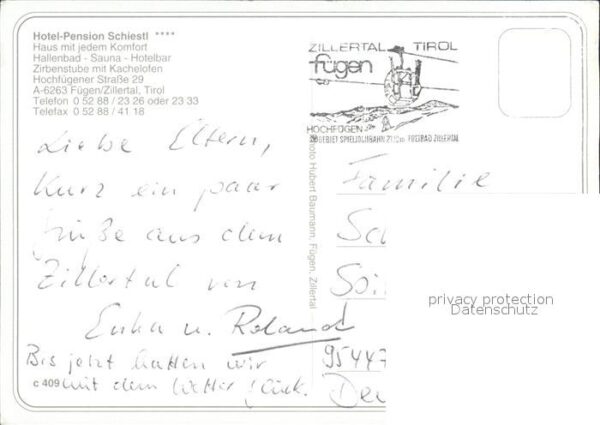 Hotel-Pension Schiestl ****
Haus mit jedem Komfort
Hallenbad - Sauna - Hotelbar
Zirbenstube mit Kachelofen
Hochfügener Straße 29
A-6263 Fügen/Zillertal, Tirol
Telefon 0 52 88 / 23 26 oder 23 33
Telefax 0 52 88 / 41 18
ZILLERTAL TIROL
fügen
HOCHFÜGEN
SPIELJOCHBAHN FREIBAD ZILLERTAL
Liebe Eltern,
Kurz ein paar
Grüße aus dem
Zillertal von
Erika u. Roland
Bis jetzt hatten wir
mit dem Wetter Glück.
c 409
Foto Hubert Baumann, Fügen, Zillertal
Familie
Sc
95447
privacy protection
Datenschutz